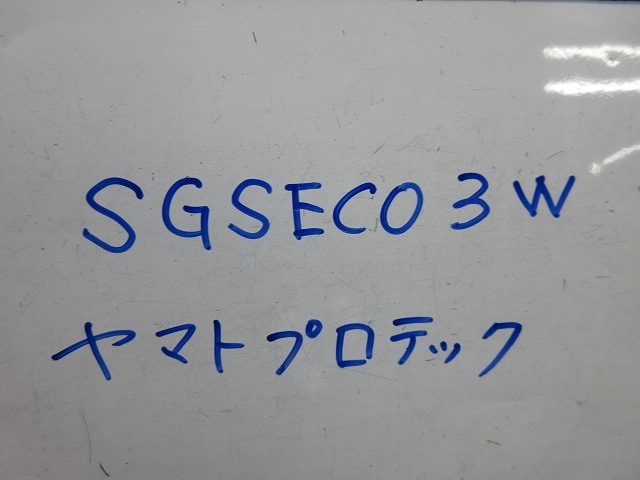 SGSECO3W
ヤマトプロテック